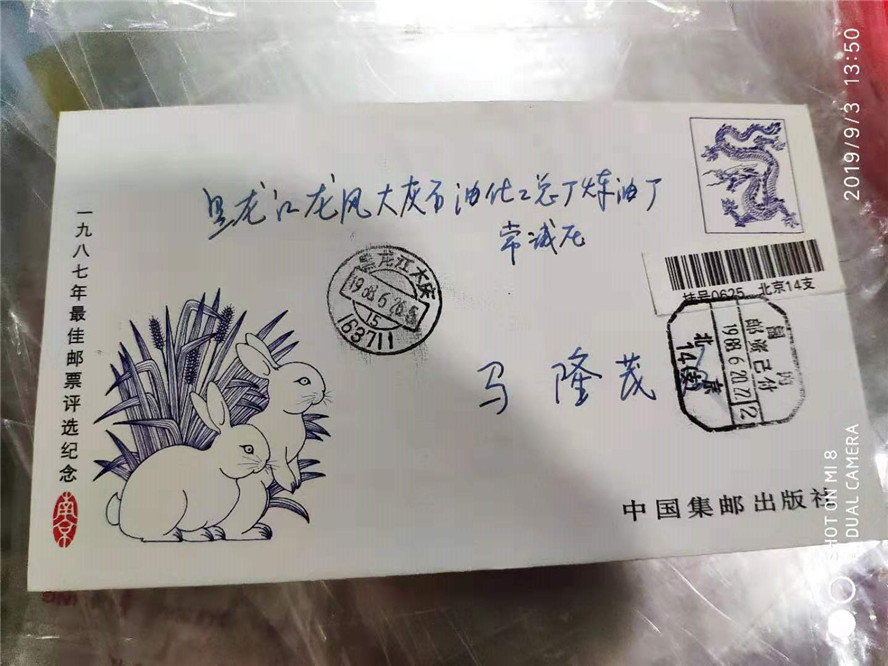 一九八七年最佳邮票评选纪念
南京
黑龙江龙凤大庆石油化工总厂炼油厂
黑龙江大庆
1988.6.26.6
15
163711
挂号0625 北京14支
国内
邮资已付
1988.6.20.22.12
北京
14(支)
马隆茂
中国集邮出版社
SHOT ON MI 8
DUAL CAMERA
2019/9/3 13:50